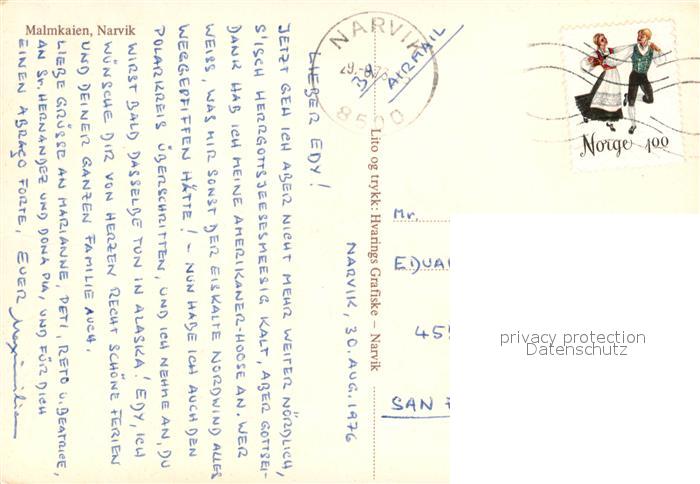 Malmkaien, Narvik
NARVIK
8500
AIRMAIL
Norge 100
Lito og trykk: Hvarings Grafiske – Narvik
NARVIK, 30. AUG. 1976
LIEBER EDY!
JETZT GEH ICH ABER NICHT MEHR WEITER NÖRDLICH,
S'ISCH HERRGOTTSJEESESMEESIG KALT, ABER GOTTSEI-
DANK HAB ICH MEINE AMERIKANER-HOOSE AN. WER
WEISS, WAS MIR SONST DER EISKALTE NORDWIND ALLES
WEGGEPFIFFEN HÄTTE! – NUN HABE ICH AUCH DEN
POLARKREIS ÜBERSCHRITTEN, UND ICH NEHME AN, DU
WIRST BALD DASSELBE TUN IN ALASKA! EDY, ICH
WÜNSCHE DIR VON HERZEN RECHT SCHÖNE FERIEN
UND DEINER GANZEN FAMILIE AUCH.
LIEBE GRÜSSE AN MARIANNE, PETI, RETO U. BEATRICE,
AN SR. HERNANDEZ UND DONA PIA, UND FÜR DICH
EINEN ABRAÇO FORTE, EUER Maximilian
Mr.
EDUA
45
SAN
privacy protection
Datenschutz